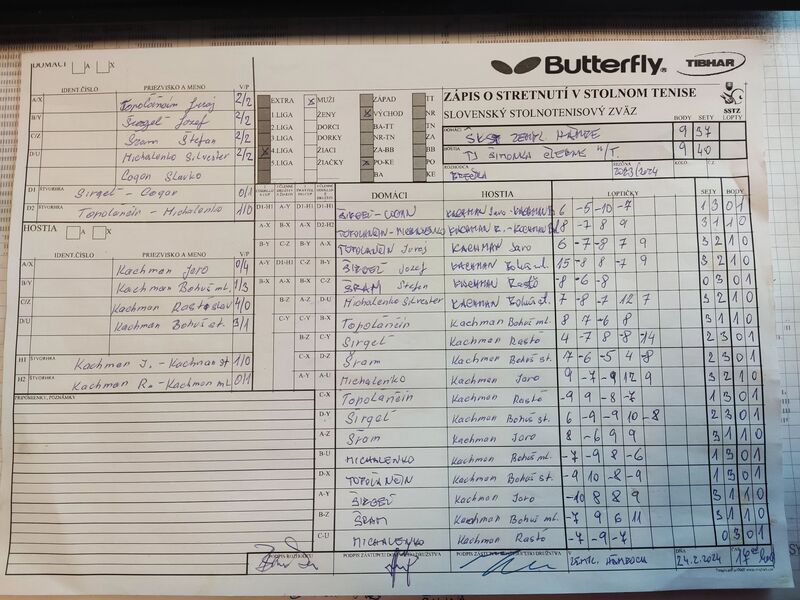 DOMÁCI A X
IDENT.ČÍSLO PRIEZVISKO A MENO V/P
A/X Topoľančin Juraj 2/2
B/Y Širgeľ Jozef 2/2
C/Z Šram Štefan 2/2
D/U Michalenko Silvester 2/2
Cogan Slavko
D1 ŠTVORHRA Širgeľ - Cogan 0/1
D2 ŠTVORHRA Topoľančin - Michalenko 1/0
HOSTIA A X
IDENT.ČÍSLO PRIEZVISKO A MENO V/P
A/X Kachman Jaro 0/4
B/Y Kachman Bohuš ml. 1/3
C/Z Kachman Rastislav 4/0
D/U Kachman Bohuš st. 3/1
H1 ŠTVORHRA Kachman J. - Kachman st 1/0
H2 ŠTVORHRA Kachman R. - Kachman ml 0/1
PRIPOMIENKY, POZNÁMKY
EXTRA MUŽI ZÁPAD TT
1.LIGA ŽENY VÝCHOD NR
2.LIGA DORCI BA-TT TN
3.LIGA DORKY NR-TN ZA
4.LIGA ŽIACI ZA-BB BB
5.LIGA ŽIAČKY PO-KE PO
BA KE
Butterfly TIBHAR
ZÁPIS O STRETNUTÍ V STOLNOM TENISE
SLOVENSKÝ STOLNOTENISOVÝ ZVÄZ
SSTZ
BODY SETY LOPTY
DOMÁCI 9 37
HOSTIA 9 40
ROZHODCA SEZÓNA 2023/2024 KOLO
DOMÁCI HOSTIA LOPTIČKY SETY BODY
D1-H1 ŠIRGEĽ - COGAN KACHMAN Jaro - KACHMAN 6 -5 -10 -7 1 3 0 1
D2-H2 TOPOĽANČIN - MICHALENKO KACHMAN R. - KACHMAN 8 -7 8 9 3 1 1 0
TOPOĽANČIN Juraj KACHMAN Jaro 6 -7 -8 7 9 3 2 1 0
ŠIRGEĽ Jozef KACHMAN Bohuš ml. 15 -8 8 -7 9 3 2 1 0
ŠRAM Štefan KACHMAN Rasťo -8 -6 -8 0 3 0 1
Michalenko Silvester KACHMAN Bohuš st. 7 -8 -7 12 7 3 2 1 0
Topoľančin Kachman Bohuš ml. 8 7 -6 8 3 1 1 0
Širgeľ Kachman Rasťo 4 -7 8 -8 -14 2 3 0 1
Šram Kachman Bohuš st. 7 -6 -5 4 -8 2 3 0 1
Michalenko Kachman Jaro 9 -7 -9 12 9 3 2 1 0
C-X Topoľančin Kachman Rasťo -9 9 -8 -7 1 3 0 1
D-Y Širgeľ Kachman Bohuš st. 6 -9 -9 10 -8 2 3 0 1
A-Z Šram Kachman Jaro 8 -6 9 9 3 1 1 0
B-U MICHALENKO Kachman Bohuš ml. -7 -9 8 -6 1 3 0 1
D-X TOPOĽANČIN Kachman Bohuš st. -9 10 -8 -9 1 3 0 1
A-Y ŠIRGEĽ Kachman Jaro -10 8 8 9 3 1 1 0
B-Z ŠRAM Kachman Bohuš ml. -7 9 6 11 3 1 1 0
C-U MICHALENKO Kachman Rasťo -7 -9 -7 0 3 0 1
PODPIS ROZHODCU PODPIS ZÁSTUPCU DOMÁCEHO DRUŽSTVA V DŇA 24.2.2024 ČAS